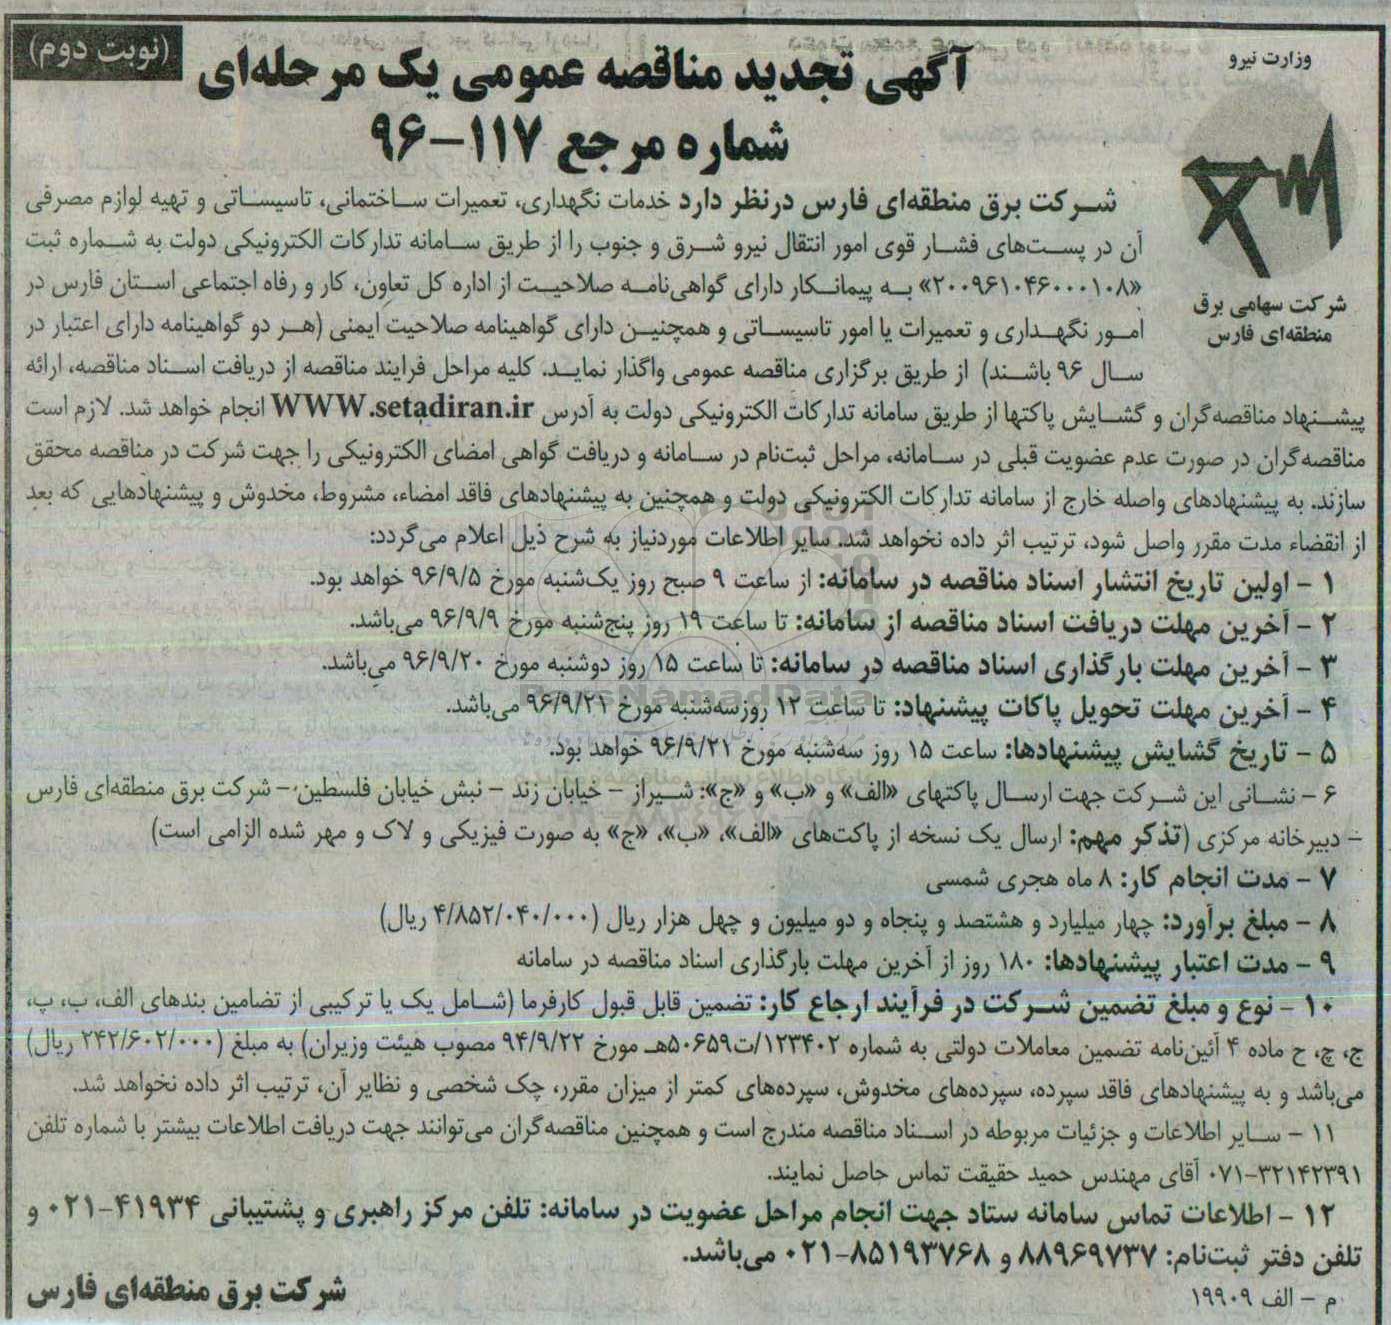 (نوبت دوم)
وزارت نیرو
آگهی تجدید مناقصه عمومی یک مرحله‌ای
شماره مرجع ۱۱۷-۹۶
شرکت سهامی برق
منطقه‌ای فارس
شرکت برق منطقه‌ای فارس درنظر دارد خدمات نگهداری، تعمیرات ساختمانی، تاسیساتی و تهیه لوازم مصرفی
آن در پست‌های فشار قوی امور انتقال نیرو شرق و جنوب را از طریق سامانه تدارکات الکترونیکی دولت به شماره ثبت
«۲۰۰۹۶۱۰۴۶۰۰۰۱۰۸» به پیمانکار دارای گواهی‌نامه صلاحیت از اداره کل تعاون، کار و رفاه اجتماعی استان فارس در
امور نگهداری و تعمیرات یا امور تاسیساتی و همچنین دارای گواهینامه صلاحیت ایمنی (هر دو گواهینامه دارای اعتبار در
سال ۹۶ باشند) از طریق برگزاری مناقصه عمومی واگذار نماید. کلیه مراحل فرایند مناقصه از دریافت اسناد مناقصه، ارائه
پیشنهاد مناقصه‌گران و گشایش پاکتها از طریق سامانه تدارکات الکترونیکی دولت به آدرس WWW.setadiran.ir انجام خواهد شد. لازم است
مناقصه‌گران در صورت عدم عضویت قبلی در سامانه، مراحل ثبت‌نام در سامانه و دریافت گواهی امضای الکترونیکی را جهت شرکت در مناقصه محقق
سازند. به پیشنهادهای واصله خارج از سامانه تدارکات الکترونیکی دولت و همچنین به پیشنهادهای فاقد امضاء، مشروط، مخدوش و پیشنهادهایی که بعد
از انقضاء مدت مقرر واصل شود، ترتیب اثر داده نخواهد شد. سایر اطلاعات موردنیاز به شرح ذیل اعلام می‌گردد:
۱ - اولین تاریخ انتشار اسناد مناقصه در سامانه: از ساعت ۹ صبح روز یک‌شنبه مورخ ۹۶/۹/۵ خواهد بود.
۲ - آخرین مهلت دریافت اسناد مناقصه از سامانه: تا ساعت ۱۹ روز پنج‌شنبه مورخ ۹۶/۹/۹ می‌باشد.
۳ - آخرین مهلت بارگذاری اسناد مناقصه در سامانه: تا ساعت ۱۵ روز دوشنبه مورخ ۹۶/۹/۲۰ می‌باشد.
ParsNamadData
۴ - آخرین مهلت تحویل پاکات پیشنهاد: تا ساعت ۱۲ روزسه‌شنبه مورخ ۹۶/۹/۲۱ می‌باشد.
۵ - تاریخ گشایش پیشنهادها: ساعت ۱۵ روز سه‌شنبه مورخ ۹۶/۹/۲۱ خواهد بود.
۶ - نشانی این شرکت جهت ارسال پاکتهای «الف» و «ب» و «ج»: شیراز - خیابان زند - نبش خیابان فلسطین - شرکت برق منطقه‌ای فارس
- دبیرخانه مرکزی (تذکر مهم: ارسال یک نسخه از پاکت‌های «الف»، «ب»، «ج» به صورت فیزیکی و لاک و مهر شده الزامی است)
۷ - مدت انجام کار: ۸ ماه هجری شمسی
۸ - مبلغ برآورد: چهار میلیارد و هشتصد و پنجاه و دو میلیون و چهل هزار ریال (۴/۸۵۲/۰۴۰/۰۰۰ ریال)
۹ - مدت اعتبار پیشنهادها: ۱۸۰ روز از آخرین مهلت بارگذاری اسناد مناقصه در سامانه
۱۰ - نوع و مبلغ تضمین شرکت در فرآیند ارجاع کار: تضمین قابل قبول کارفرما (شامل یک یا ترکیبی از تضامین بندهای الف، ب، پ،
ج، چ، ح ماده ۴ آئین‌نامه تضمین معاملات دولتی به شماره ۱۲۳۴۰۲/ت۵۰۶۵۹هـ مورخ ۹۴/۹/۲۲ مصوب هیئت وزیران) به مبلغ (۲۴۲/۶۰۲/۰۰۰ ریال)
می‌باشد و به پیشنهادهای فاقد سپرده، سپرده‌های مخدوش، سپرده‌های کمتر از میزان مقرر، چک شخصی و نظایر آن، ترتیب اثر داده نخواهد شد.
۱۱ - سایر اطلاعات و جزئیات مربوطه در اسناد مناقصه مندرج است و همچنین مناقصه‌گران می‌توانند جهت دریافت اطلاعات بیشتر با شماره تلفن
۰۷۱-۳۲۱۴۲۳۹۱ آقای مهندس حمید حقیقت تماس حاصل نمایند.
۱۲ - اطلاعات تماس سامانه ستاد جهت انجام مراحل عضویت در سامانه: تلفن مرکز راهبری و پشتیبانی ۴۱۹۳۴-۰۲۱ و
تلفن دفتر ثبت‌نام: ۸۸۹۶۹۷۳۷ و ۸۵۱۹۳۷۶۸-۰۲۱ می‌باشد.
م - الف ۱۹۹۰۹
شرکت برق منطقه‌ای فارس